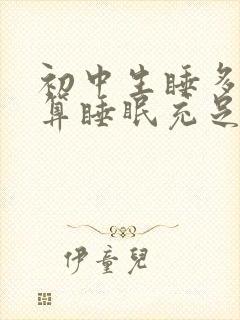 初中生睡多
算睡眠充足
伊童兒